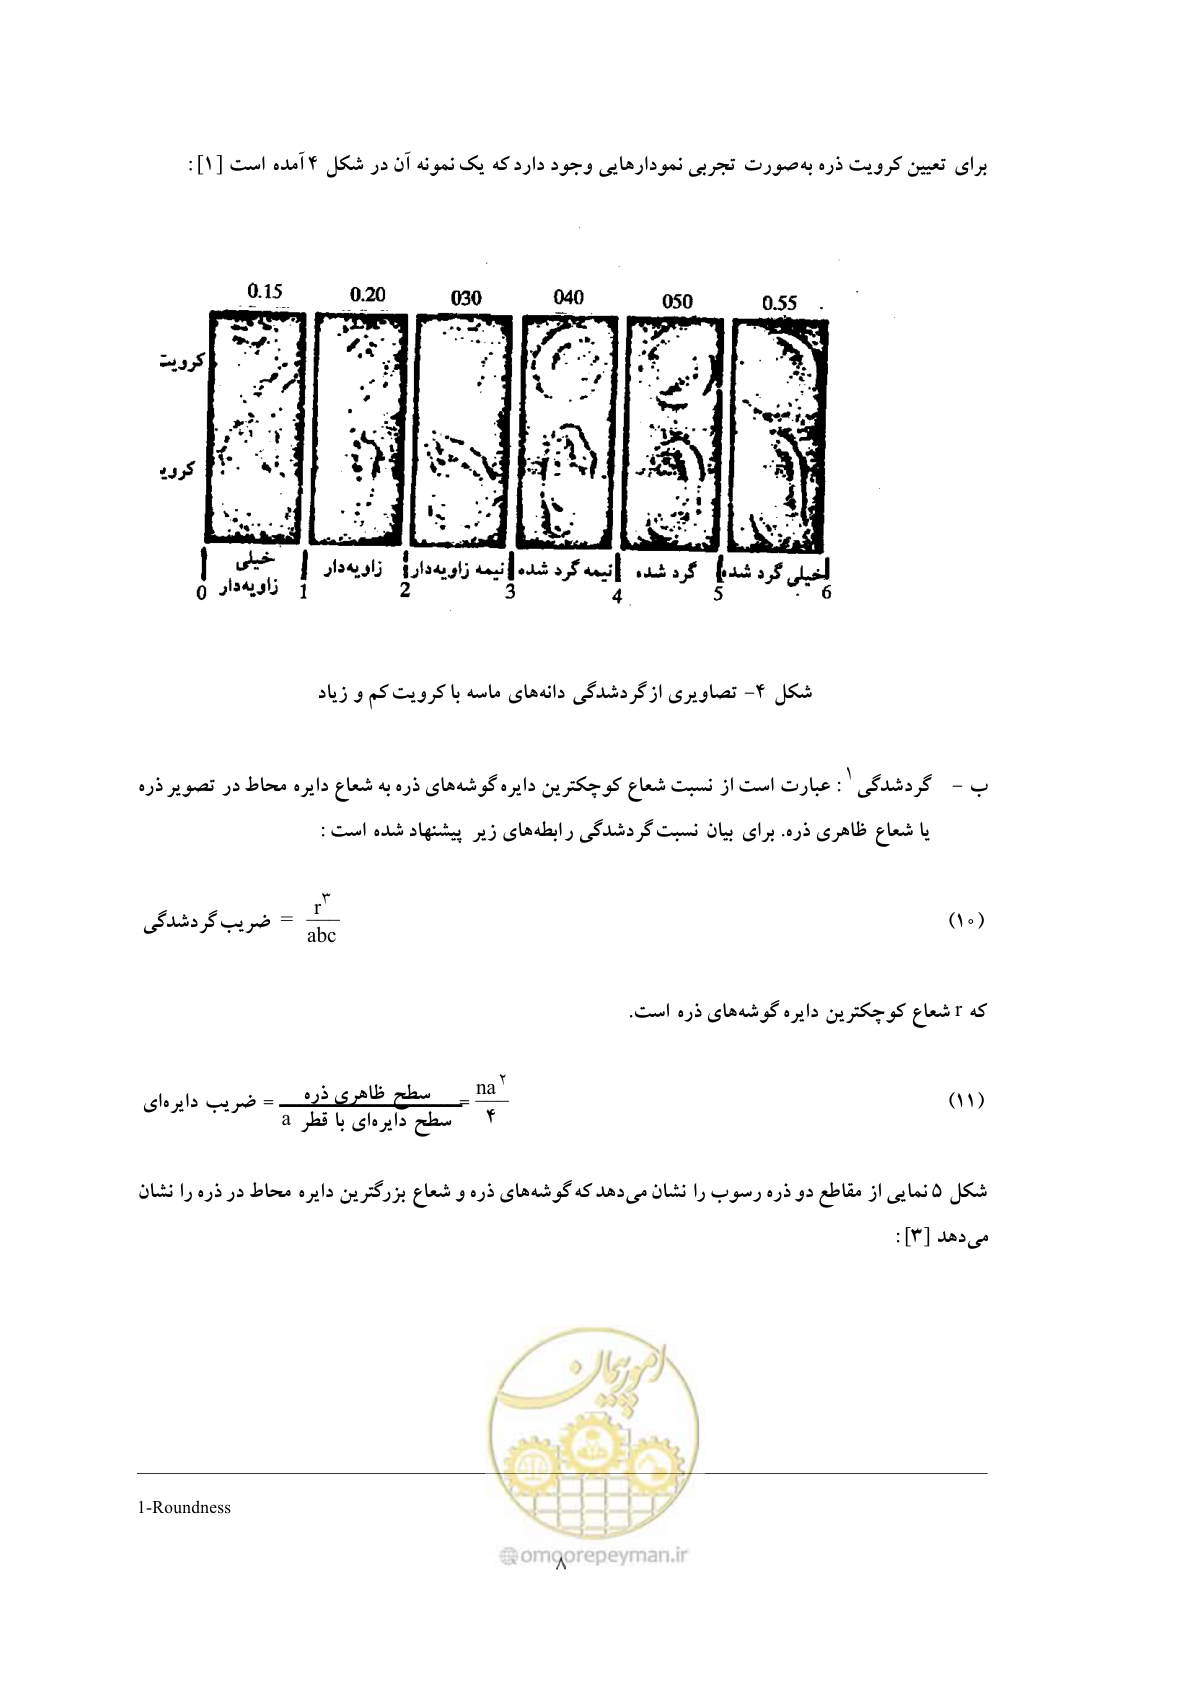 برای تعیین کرویت ذره به‌صورت تجربی نمودارهایی وجود دارد که یک نمونه آن در شکل ۴ آمده است [۱] :
0.15 0.20 030 040 050 0.55
کرویت
خیلی زاویه‌دار زاویه‌دار نیمه زاویه‌دار نیمه گرد شده گرد شده خیلی گرد شده
0 1 2 3 4 5 6
شکل ۴– تصاویری از گردشدگی دانه‌های ماسه با کرویت کم و زیاد
ب – گردشدگی ۱ : عبارت است از نسبت شعاع کوچکترین دایره گوشه‌های ذره به شعاع دایره محاط در تصویر ذره
یا شعاع ظاهری ذره. برای بیان نسبت گردشدگی رابطه‌های زیر پیشنهاد شده است :
ضریب گردشدگی = r۳ / abc (۱۰)
که r شعاع کوچکترین دایره گوشه‌های ذره است.
ضریب دایره‌ای = سطح ظاهری ذره / سطح دایره‌ای با قطر a = na۲ / ۴ (۱۱)
شکل ۵ نمایی از مقاطع دو ذره رسوب را نشان می‌دهد که گوشه‌های ذره و شعاع بزرگترین دایره محاط در ذره را نشان
می‌دهد [۳] :
امور پیمان
1-Roundness
@omoorepeyman.ir
۸